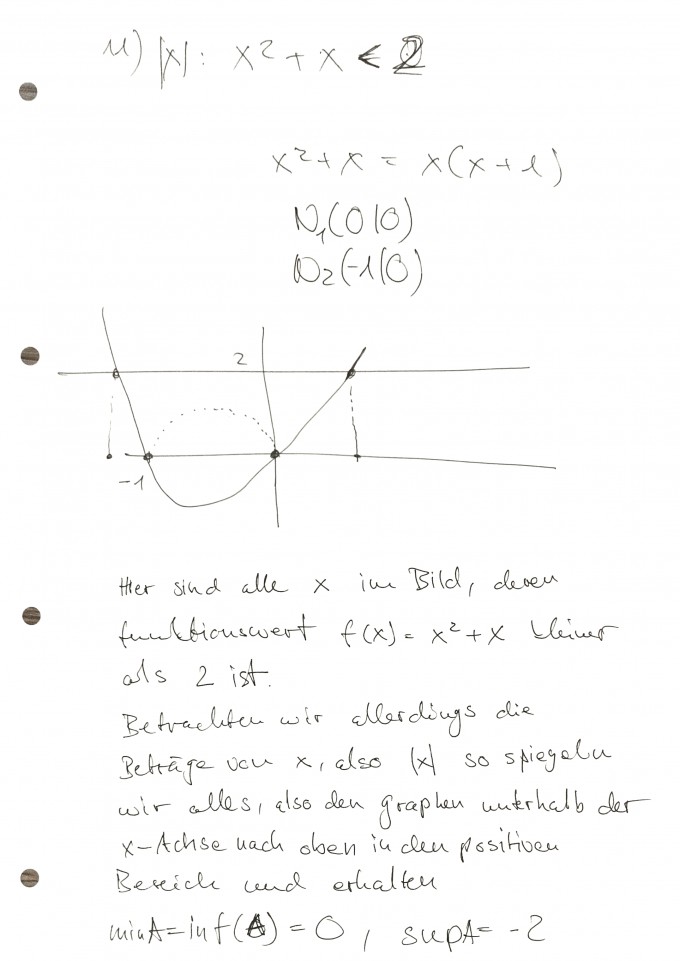 u) |x| : x² + x < 2
x² + x = x(x+1)
N₁(0|0)
N₂(-1|0)
2
-1
Hier sind alle x im Bild, deren
funktionswert f(x) = x² + x kleiner
als 2 ist.
Betrachten wir allerdings die
Beträge von x, also |x| so spiegeln
wir alles, also den graphen unterhalb der
x-Achse nach oben in den positiven
Bereich und erhalten
min A = inf(A) = 0, sup A = -2